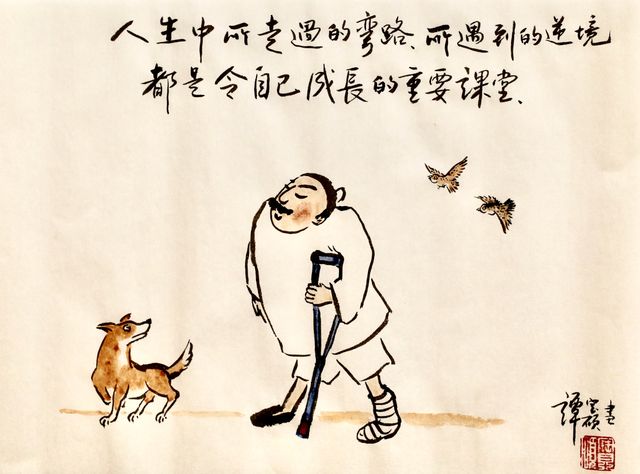 人生中所走過的弯路、所遇到的逆境
都是令自己成長的重要課堂、
譚寶碩畫